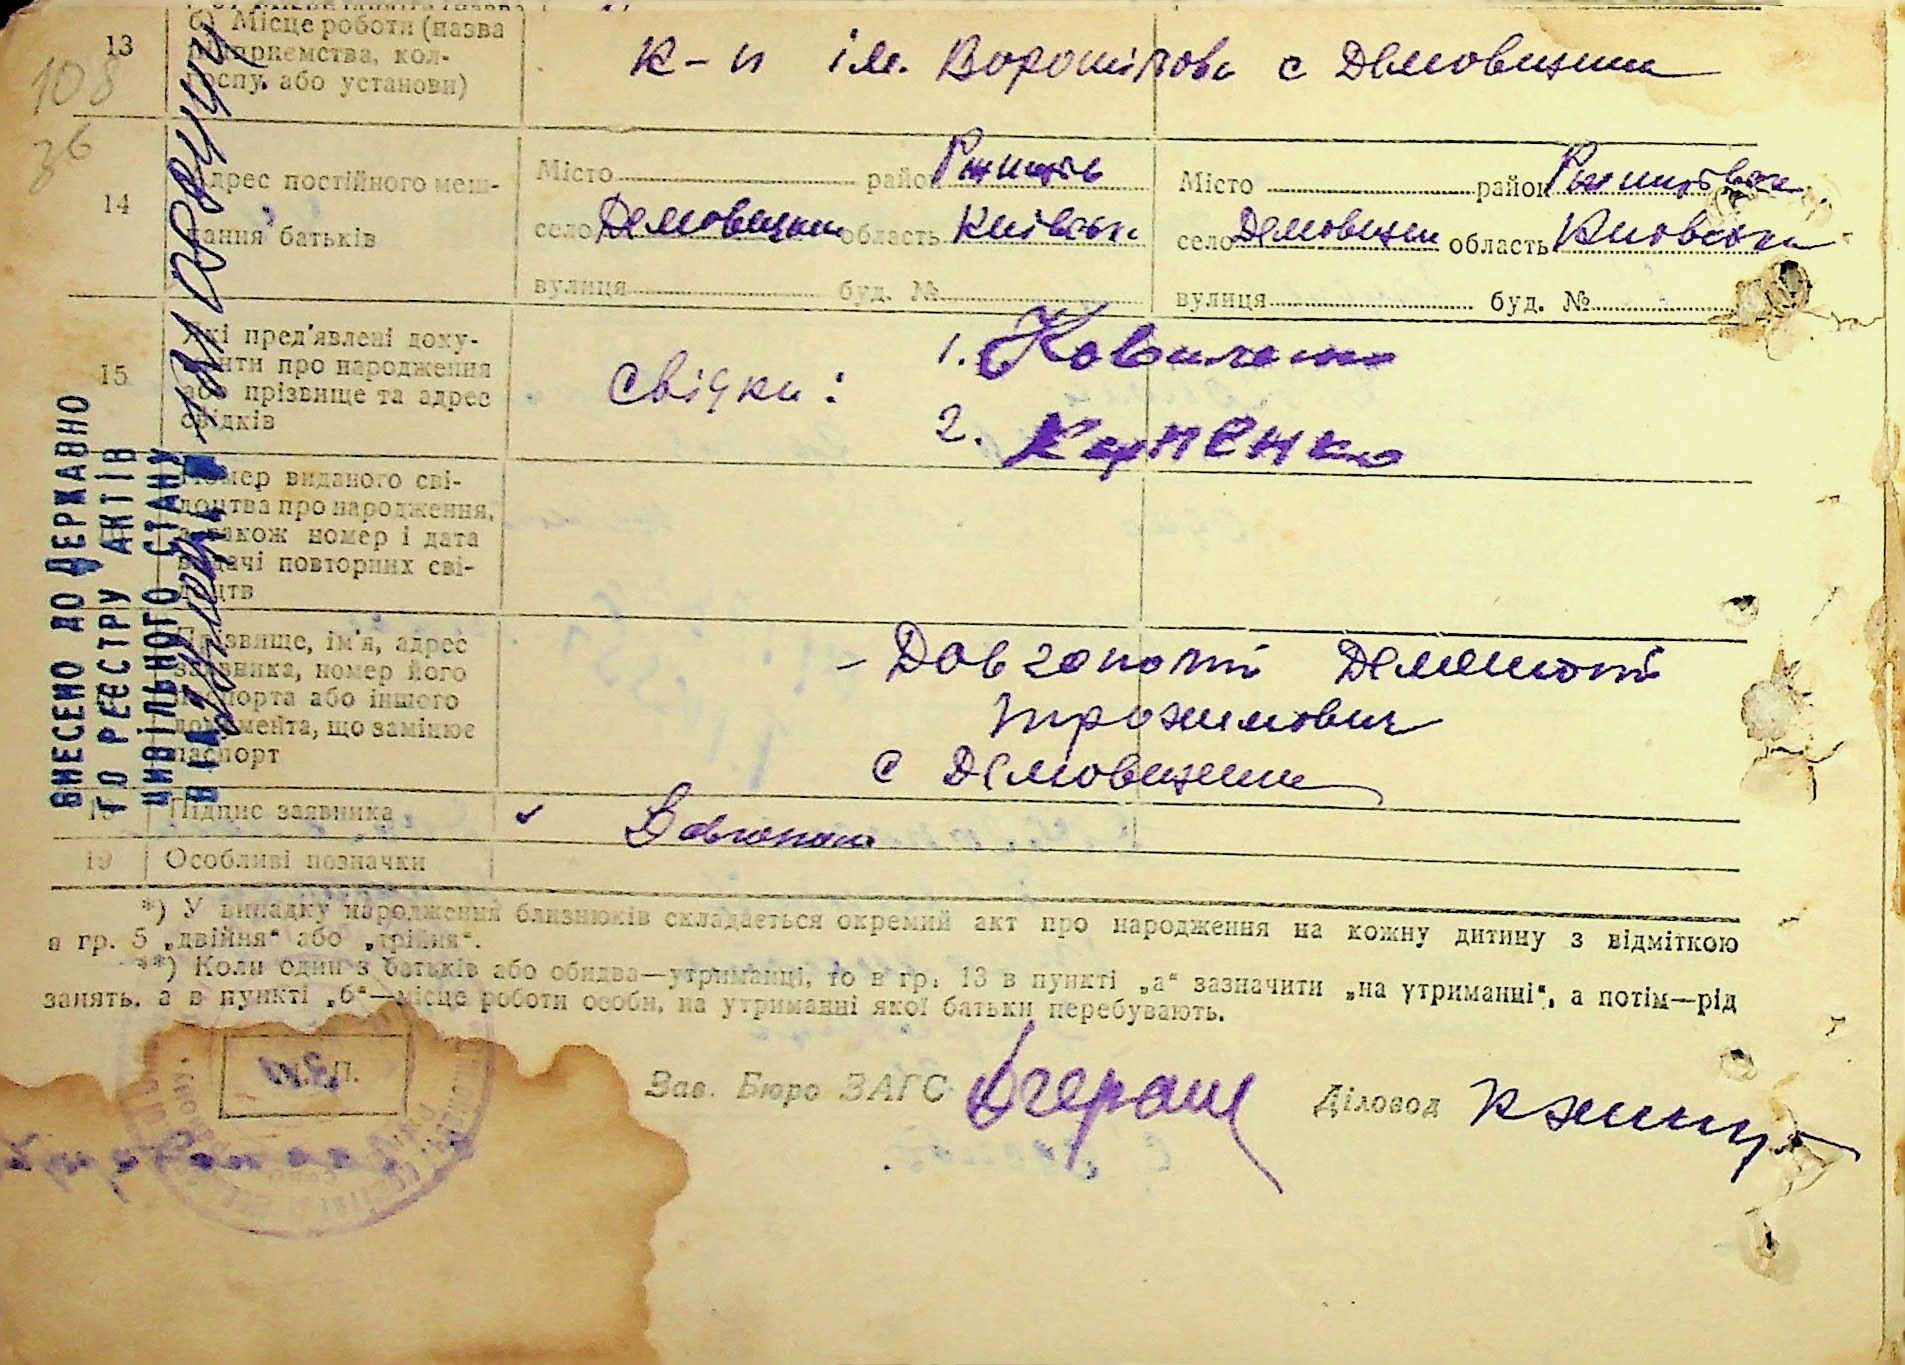 13
б) Місце роботи (назва
підприємства, кол-
госпу, або установи)
к-п ім. Ворошілова с Демовщина
108
36
14
Адрес постійного меш-
кання батьків
Місто район Ржищів
село Демовщина область Київськ
вулиця буд. №
Місто район Ржищівськ
село Демовщин область Київська
вулиця буд. №
15
Які пред'явлені доку-
менти про народження
або прізвище та адрес
свідків
Свідки:
1.
2. Карпенко
Номер виданого сві-
доцтва про народження,
а також номер і дата
видачі повторних сві-
доцтв
Прізвище, ім'я, адрес
заявника, номер його
паспорта або іншого
документа, що замінює
паспорт
- Довгополий
Трохимович
с Демовщина
18
Підпис заявника
Довгопол
19
Особливі позначки
ВНЕСЕНО ДО ДЕРЖАВНО
ГО РЕЄСТРУ АКТІВ
ЦИВІЛЬНОГО СТАНУ
*) У випадку народження близнюків складається окремий акт про народження на кожну дитину з відміткою
в гр. 5 „двійня“ або „трійня“.
**) Коли один з батьків або обидва—утриманці, то в гр. 13 в пункті „а“ зазначити „на утриманні“, а потім—рід
занять. а в пункті „б“—місце роботи особи, на утриманні якої батьки перебувають.
М. П.
Зав. Бюро ЗАГС
Діловод